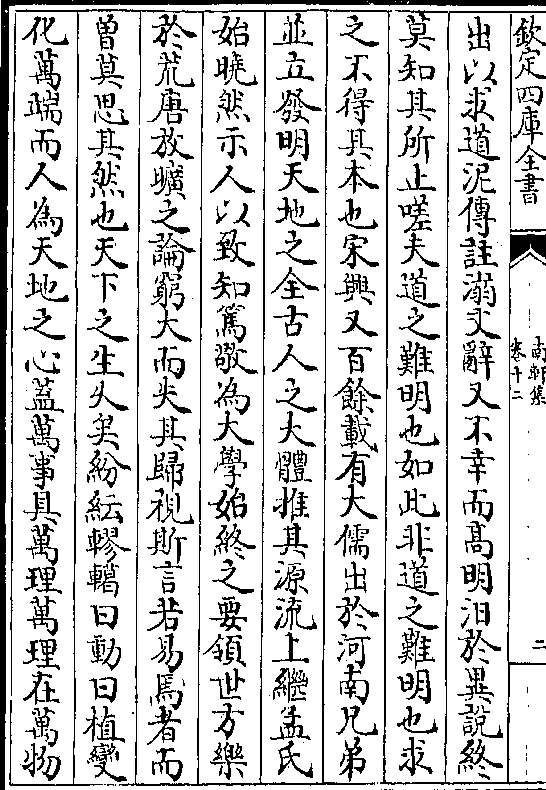 欽定四庫全書
南軒集
卷十二
二
出以求道泥傳註溺文辭又不幸而髙明汨於異說終
莫知其所止嗟夫道之難明也如此非道之難明也求
之不得其本也宋興又百餘載有大儒出於河南兄弟
並立發明天地之全古人之大體推其源流上繼孟氏
始曉然示人以致知篤敬為大學始終之要領世方樂
於荒唐放曠之論窮大而失其歸視斯言若易焉者而
曽莫思其然也天下之生久矣紛紜轇轕曰動曰植變
化萬端而人為天地之心蓋萬事具萬理萬理在萬物